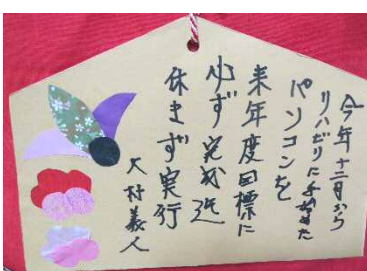 今年十二月から
リハビリに手始めた
パソコンを
来年度目標に
必ず完成迄
休まず実行
大村義人